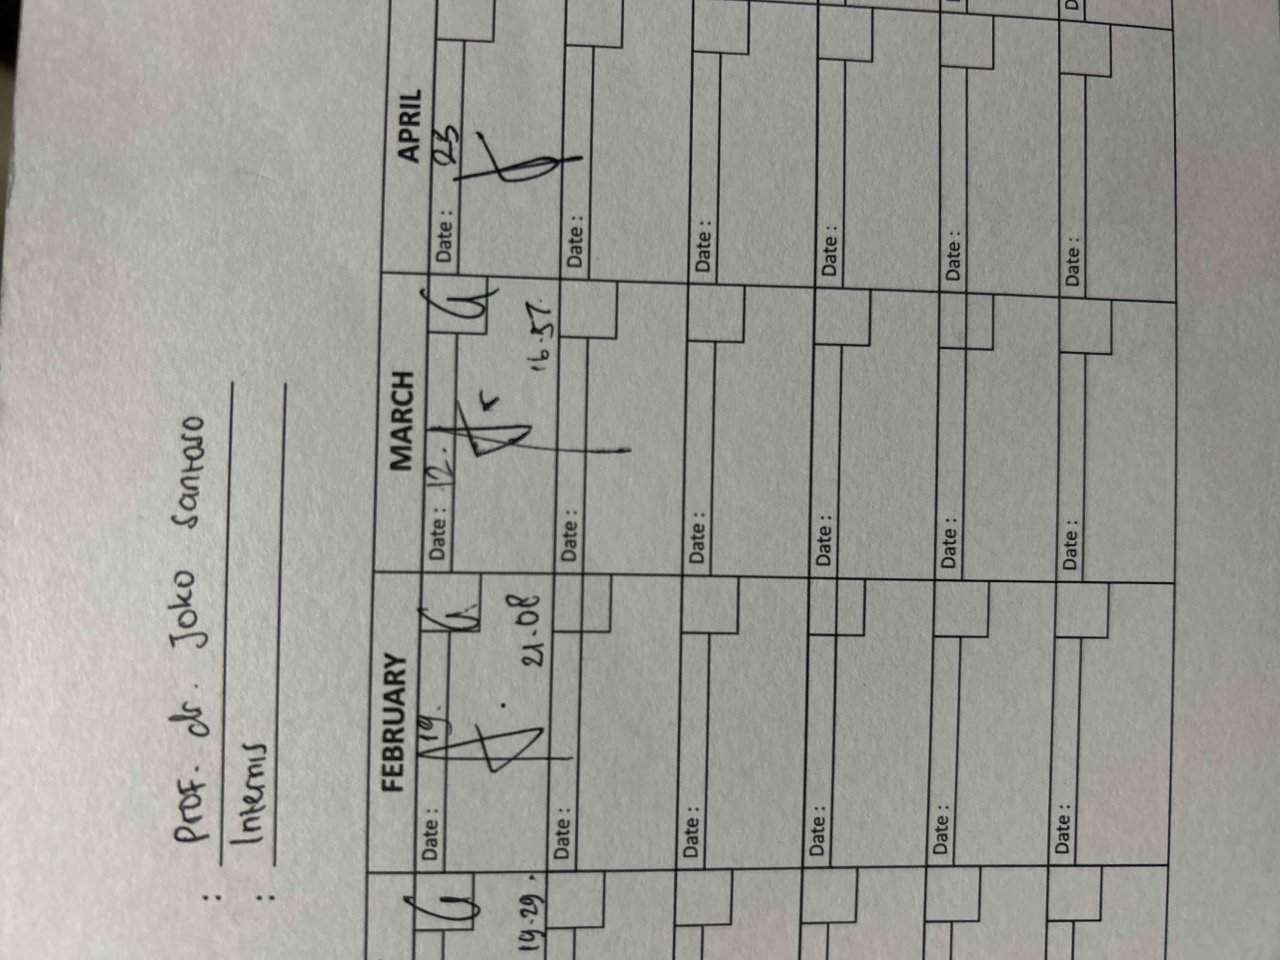 : Prof. dr. Joko Santoso
: Internis
FEBRUARY MARCH APRIL
Date : 19. Date : 12. Date : 23
19.29. 21.08 16.57.
Date : Date : Date :
Date : Date : Date :
Date : Date : Date :
Date : Date : Date :
Date : Date : Date :